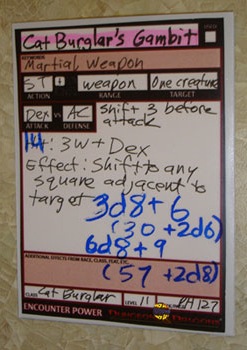 Cat Burglar's Gambit
KEYWORDS
Martial, Weapon
ST weapon One creature
ACTION RANGE TARGET
Dex vs AC shift 3 before
ATTACK DEFENSE attack
Hit: 3W + Dex
Effect: Shift to any
square adjacent to
target
3d8+6
(30+2d6)
6d8+9
(57+2d8)
ADDITIONAL EFFECTS FROM RACE, CLASS, FEAT, ETC.
CLASS Cat Burglar LEVEL 11 127
ENCOUNTER POWER DUNGEONS & DRAGONS